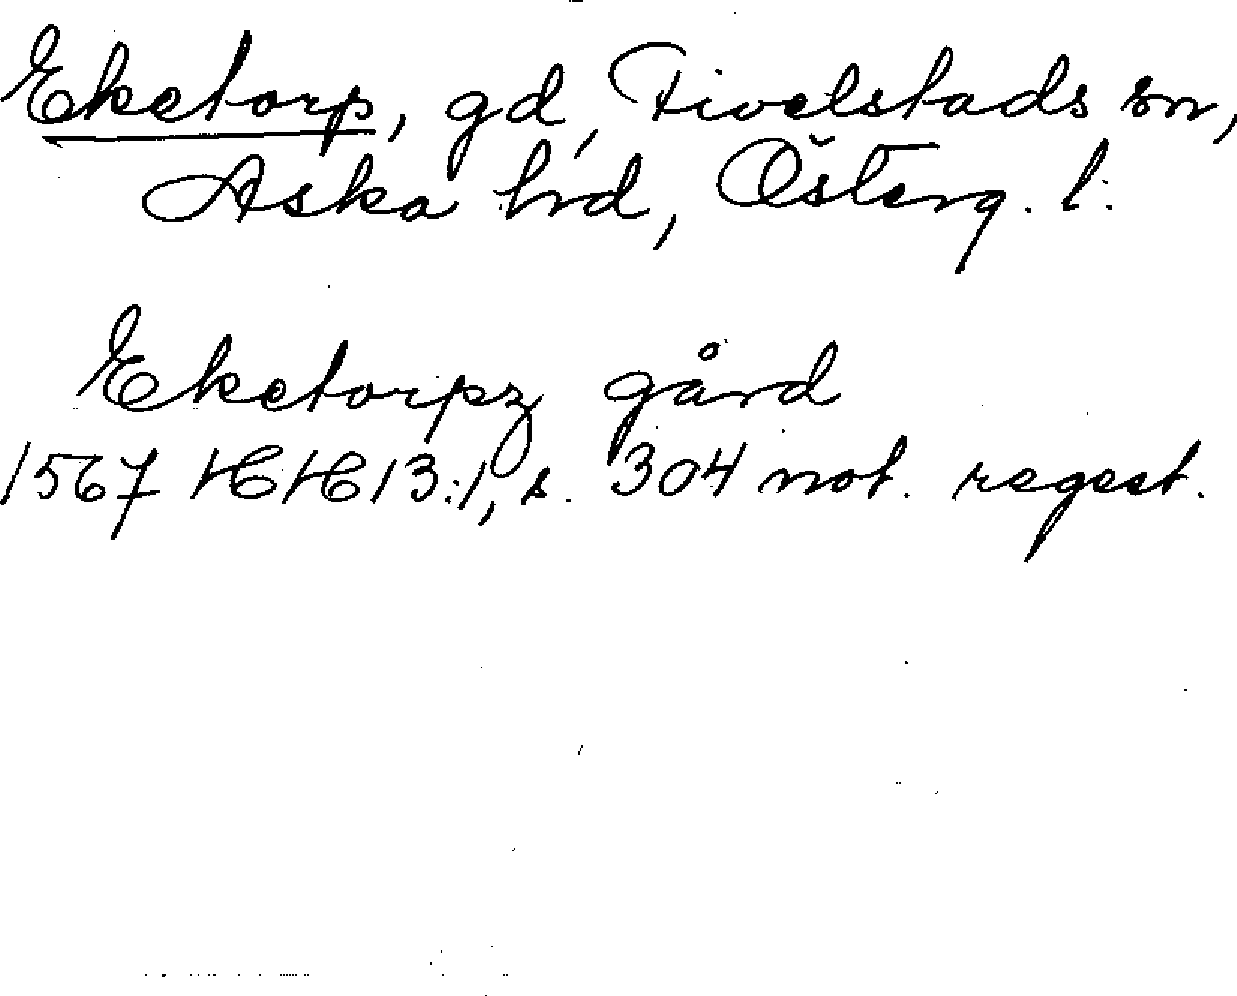 Eketorp, gd, Fivelstads sn,
Aska hrd, Österg. l.
Eketorpz gård
1567 HH 13:1, s. 304 not. regest.